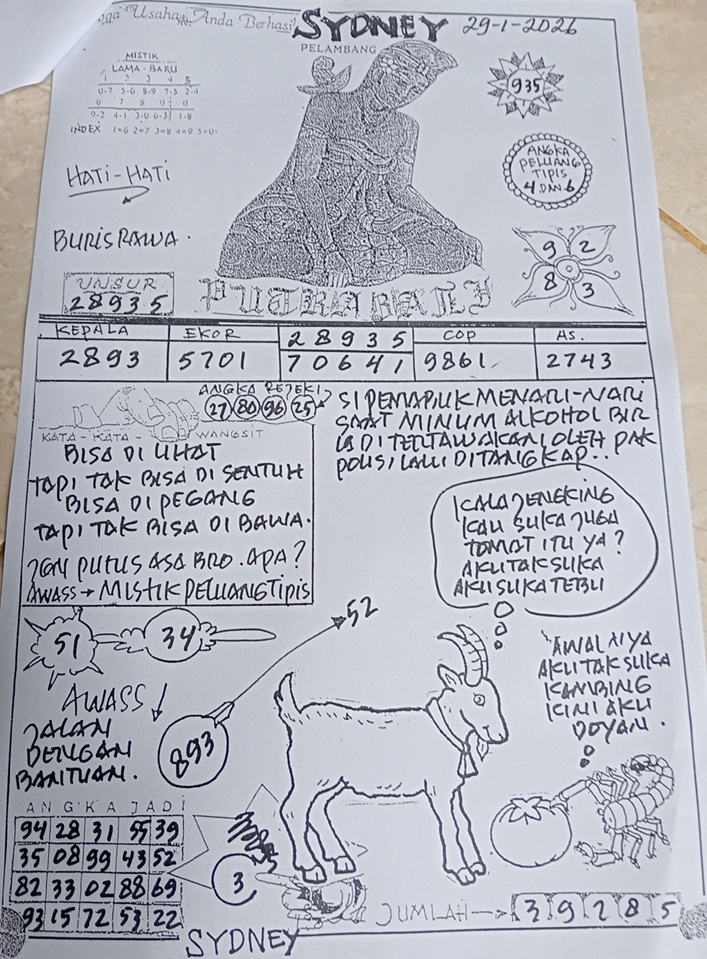 Usaha Anda Berhasil
SYDNEY 29-1-2026
PELAMBANG
MISTIK
LAMA - BARU
1 2 3 4 5
0-7 5-6 8-9 7-5 2-4
6 7 8 9 0
9-2 4-1 3-0 6-3 1-8
INDEX 1=6 2=7 3=8 4=9 5=0
935
ANGKA
PELUANG
TIPIS
4 DAN 6
HATI-HATI
BURISRAWA.
9 2
8 3
UNSUR
28935
PUTRA BALI
KEPALA EKOR 28935 COP AS.
2893 5701 70641 9861 2743
ANGKA REJEKI
27 80 96 25
KATA - KATA - WANGSIT
SI PEMABUK MENARI-NARI
SAAT MINUM ALKOHOL BIR
IA DI TERTAWAKAN OLEH PAK
POLISI LALU DITANGKAP..
BISA DI LIHAT
TAPI TAK BISA DI SENTUH
BISA DI PEGANG
TAPI TAK BISA DI BAWA.
JGN PUTUS ASA BRO. APA?
AWASS → MISTIK PELUANG TIPIS
KALAJENGKING
KAU SUKA JUGA
TOMAT ITU YA?
AKU TAK SUKA
AKU SUKA TEBU
51 34
52
AWALNYA
AKU TAK SUKA
KAMBING
KINI AKU
DOYAN.
AWASS
893
JALAN
DENGAN
BANTUAN.
ANGKA JADI
94 28 31 55 39
35 08 99 43 52
82 33 02 88 69
93 15 72 53 22
3
JUMLAH → 39285
SYDNEY